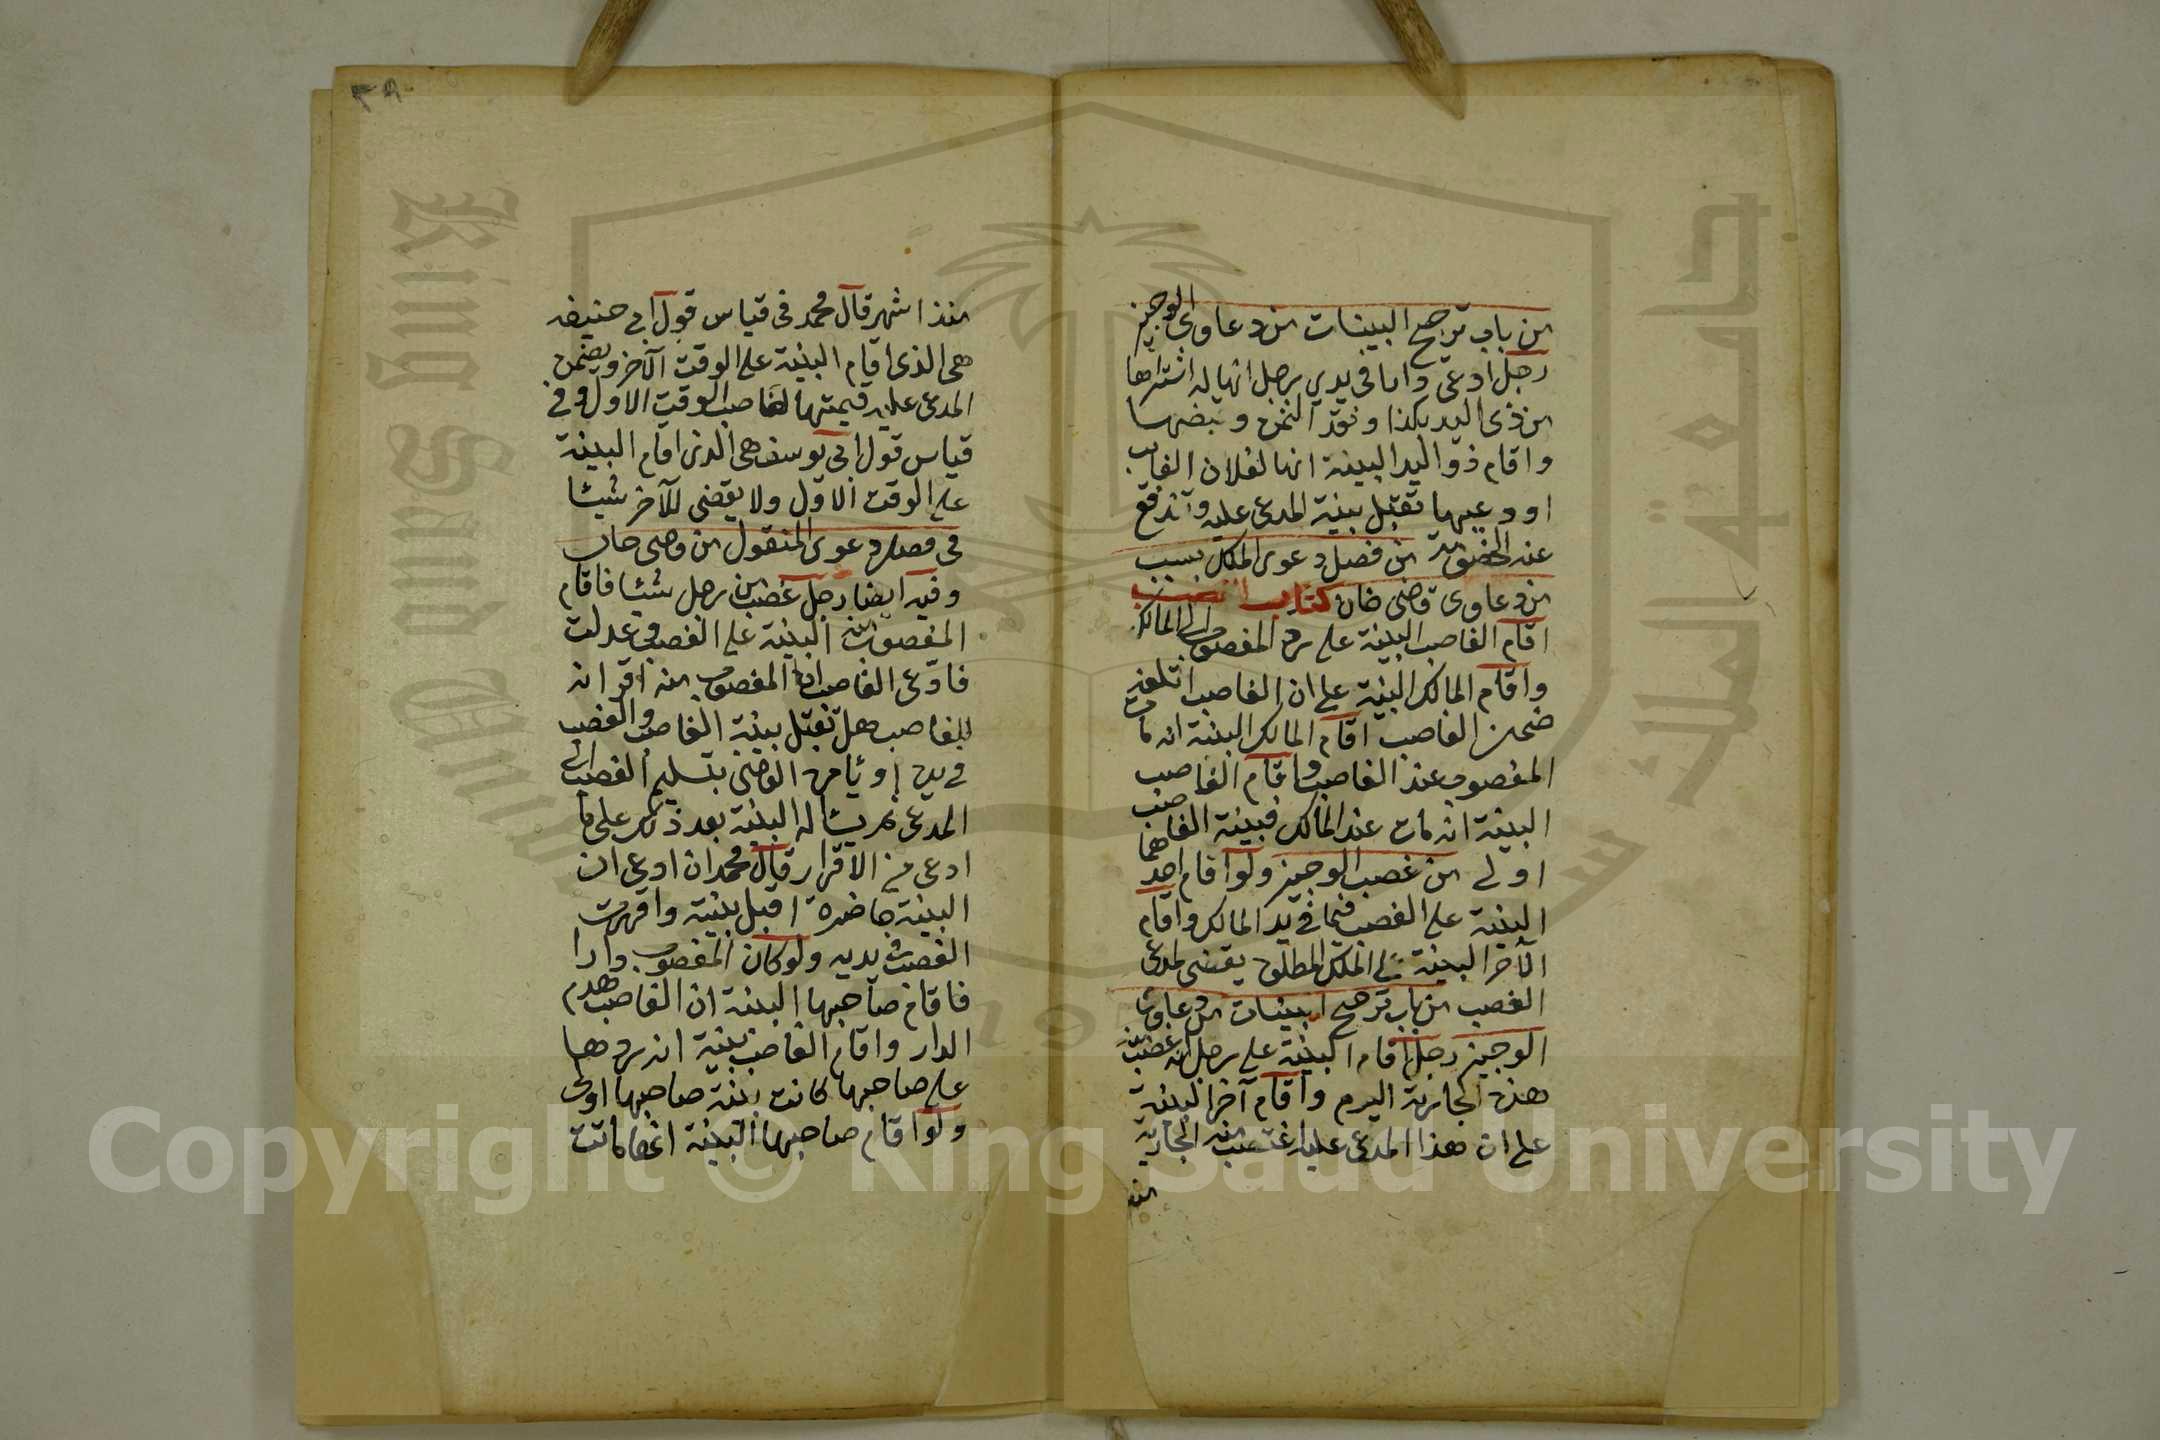 من باب ترجيح البينات من دعاوى الوجيز
رجل ادعى دارا في يدي رجل انها له اشتراها
من ذى اليد بكذا ونقد الثمن وقبضها
واقام ذو اليد البينة انها لفلان الغائب
اودعيها تقبل بينة المدعى عليه وتندفع
عنه الخصومة من فصل دعوى الملك بسبب
من دعاوى قاضى خان كتاب الغصب
اقام الغاصب البينة على رد المغصوب الى المالك
واقام المالك البينة على ان الغاصب اتلفه
ضمن الغاصب اقام المالك البينة انه مات
المغصوب عند الغاصب واقام الغاصب
البينة انه مات عند المالك فبينة الغاصب
اولى من غصب الوجيز ولو اقام احدهما
البينة على الغصب فيما في يد المالك واقام
الآخر البينة على الملك المطلق يقضى لمدعى
الغصب من باب ترجيح البينات من دعاوى
الوجيز رجل اقام البينة على رجل انه غصب منه
هذه الجارية اليوم واقام آخر البينة
على ان هذا المدعى عليه اغتصب منه الجارية
منذ
٣٨
منذ اشهر قال محمد في قياس قول ابي حنيفه
هي الذى اقام البينة على الوقت الآخر ويضمن
المدعى عليه قيمتها لصاحب الوقت الاول وفي
قياس قول ابي يوسف هي الذى اقام البينة
على الوقت الاول ولا يقضى للآخر شيئا
في فصل دعوى المنقول من قاضى خان
وفيه ايضا رجل غصب من رجل شيئا فاقام
المغصوب منه البينة على الغصب وعدلت
فادعى الغاصب ان المغصوب منه اقر انه
للغاصب هل تقبل بينة الغاصب والغصب
في يده او يامره القاضى بتسليم الغصب الى
المدعى ثم يسأله البينة بعد ذلك على ما
ادعى من الاقرار قال محمد ان ادعى ان
البينة حاضرة اقبل بينة واقررت
الغصب في يديه ولو كان المغصوب دارا
فاقام صاحبها البينة ان الغاصب هدم
الدار واقام الغاصب بينة انه ردها
على صاحبها كانت بينة صاحبها اولى
ولو اقام صاحبها البينة انها ماتت